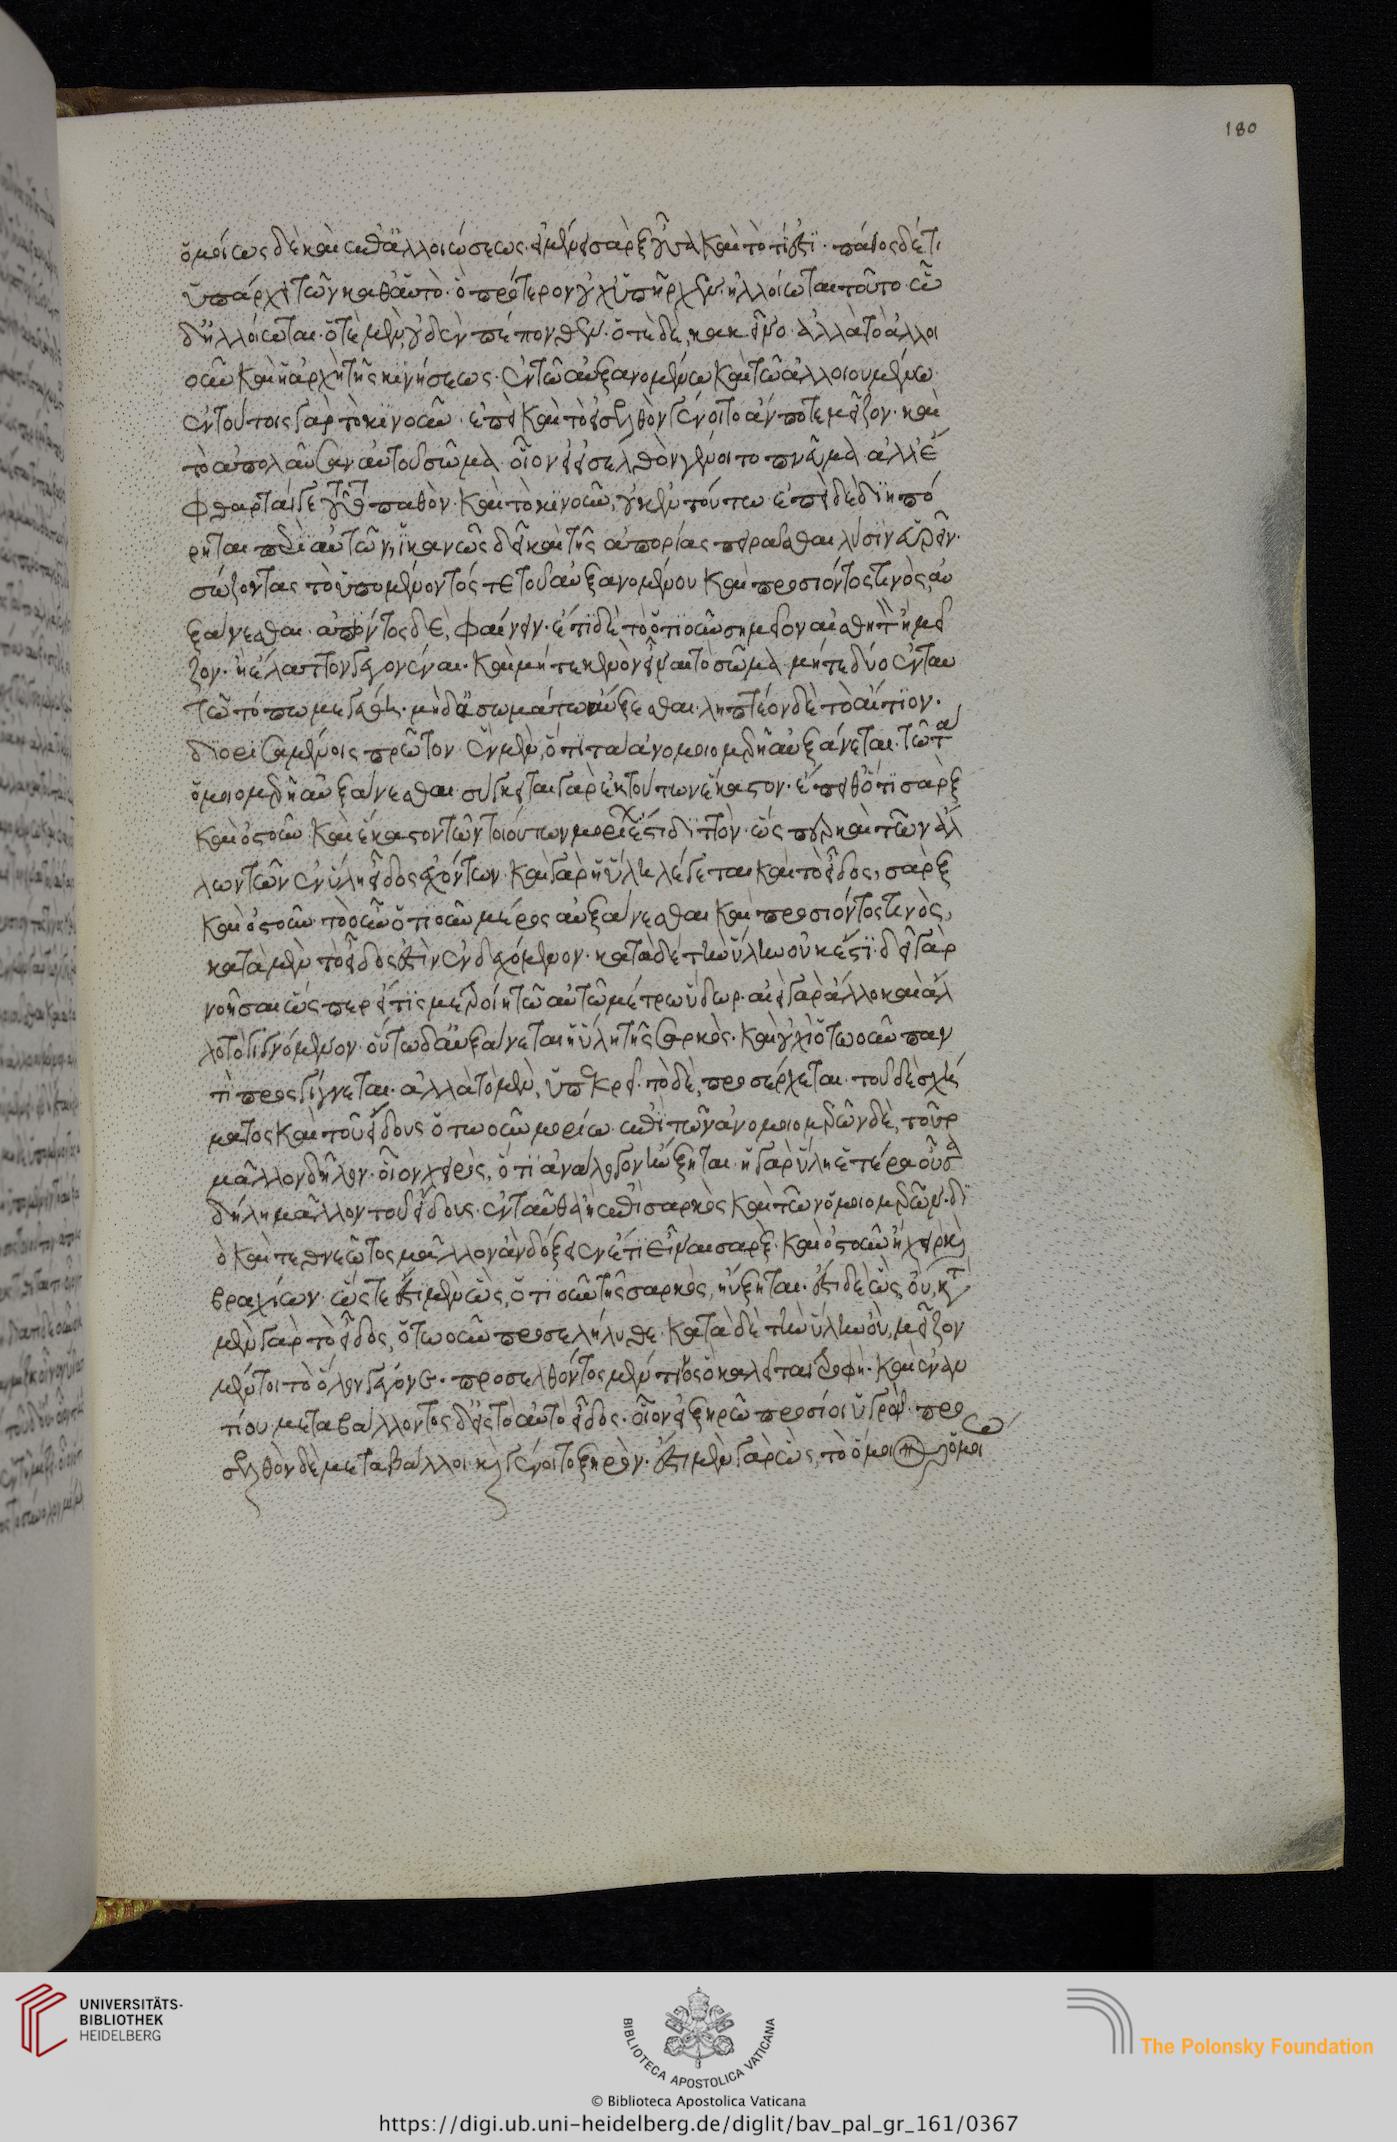 ὁμοίως δὲ καὶ ἐπὶ ἀλλοιώσεως. εἰ μὲν ἡ σὰρξ οὐσία καὶ τὸ τί ἐστι. πάθος δέ τι
ὑπάρχει τῶν καθ' αὑτὸ. ὃ πρότερον οὐχ ὑπῆρχεν. ἠλλοίωται τοῦτο. ὧ
δ' ἠλλοίωται. ὁτὲ μὲν, οὐδὲν πέπονθεν. ὁτὲ δὲ, κἀκεῖνο. ἀλλὰ τὸ ἀλλοι
οῦν καὶ ἡ ἀρχὴ τῆς κινήσεως. ἐν τῶ αὐξανομένω καὶ τῶ ἀλλοιουμένω.
ἐν τούτοις γὰρ τὸ κινοῦν. ἐπεὶ καὶ τὸ εἰσελθὸν γένοιτο ἄν ποτε μεῖζον. καὶ
τὸ ἀπολαῦσαν αὐτοῦ σῶμα. οἷον εἰ εἰσελθὸν γένοιτο πνεῦμα. ἀλλ' ἔ
φθαρταί γε τοῦτο παθὸν. καὶ τὸ κινοῦν, οὐκ ἐν τούτω. ἐπεὶ δὲ διηπό
ρηται περὶ αὐτῶν, ἱκανῶς δεῖ καὶ τῆς ἀπορίας πειρᾶσθαι λύσιν εὑρεῖν.
σώζοντας τὸ ὑπομένοντός τε τοῦ αὐξανομένου καὶ προσιόντος τινὸς, αὐ
ξάνεσθαι. ἀπιόντος δὲ, φθίνειν. ἔτι δὲ τὸ ὁτιοῦν σημεῖον αἰσθητὸν ἢ μεῖ
ζον. ἢ ἔλαττον γεγονέναι. καὶ μήτε κενὸν εἶναι τὸ σῶμα. μήτε δύο ἐν ταυ
τῶ τόπω μεγέθη. μηδ' ἀσωμάτω αὔξεσθαι. ληπτέον δὲ τὸ αἴτιον.
διορισαμένοις πρῶτον. ἓν μὲν, ὅτι τὰ ἀνομοιομερῆ αὐξάνεται. τῶ τὰ
ὁμοιομερῆ αὐξάνεσθαι. σύγκειται γὰρ ἐκ τούτων ἕκαστον. ἔπειθ' ὅτι σὰρξ
καὶ ὀστοῦν. καὶ ἕκαστον τῶν τοιούτων μορίων ἐστὶ διττὸν. ὥσπερ καὶ τῶν ἄλ
λων τῶν ἐν ὕλη εἶδος ἐχόντων. καὶ γὰρ ἡ ὕλη λέγεται καὶ τὸ εἶδος, σὰρξ
καὶ ὀστοῦν. τὸ οὖν ὁτιοῦν μέρος αὐξάνεσθαι καὶ προσιόντος τινὸς,
κατὰ μὲν τὸ εἶδος ἐστὶν ἐνδεχόμενον. κατὰ δὲ τὴν ὕλην οὐκ ἔστι. δεῖ γὰρ
νοῆσαι ὥσπερ εἴ τις μετροίη τῶ αὐτῶ μέτρω ὕδωρ. ἀεὶ γὰρ ἄλλο καὶ ἄλ
λο τὸ γινόμενον. οὕτω δ' αὐξάνεται ἡ ὕλη τῆς σαρκὸς. καὶ οὐχὶ ὁτωοῦν παν
τὶ προσγίγνεται. ἀλλὰ τὸ μὲν, ὑπεκρεῖ. τὸ δὲ, προσέρχεται. τοῦ δὲ σχή
ματος καὶ τοῦ εἴδους ὁτωοῦν μορίω. ἐπὶ τῶν ἀνομοιομερῶν δὲ, τοῦτο
μᾶλλον δῆλον. οἷον χειρὸς, ὅτι ἀνάλογον ηὔξηται. ἡ γὰρ ὕλη ἑτέρα οὖσα
δήλη μᾶλλον τοῦ εἴδους. ἐνταῦθα ἢ ἐπὶ σαρκὸς καὶ τῶν ὁμοιομερῶν. δι
ὸ καὶ τεθνεῶτος μᾶλλον ἂν δόξειεν ἔτι εἶναι σὰρξ. καὶ ὀστοῦν ἢ χεὶρ καὶ
βραχίων. ὥστε ἔστι μὲν ὡς, ὁτιοῦν τῆς σαρκὸς, ηὔξηται. ἔστι δὲ ὡς, οὐ. κατὰ
μὲν γὰρ τὸ εἶδος, ὁτωοῦν προσελήλυθε. κατὰ δὲ τὴν ὕλην οὐ, μεῖζον
μέντοι τὸ ὅλον γέγονε. προσελθόντος μέν τινος ὃ καλεῖται τροφὴ. καὶ ἐναν
τίου μεταβάλλοντος δ' εἰς τὸ αὐτὸ εἶδος. οἷον εἰ ξηρῶ προσίοι ὑγρὸν. προ
σελθὸν δὲ μεταβάλλοι. καὶ γένοιτο ξηρὸν. ἔστι μὲν γὰρ ὡς, τὸ ὅμοιον ὁμοίω
180
UNIVERSITÄTS-
BIBLIOTHEK
HEIDELBERG
BIBLIOTECA APOSTOLICA VATICANA
© Biblioteca Apostolica Vaticana
The Polonsky Foundation
https://digi.ub.uni-heidelberg.de/diglit/bav_pal_gr_161/0367